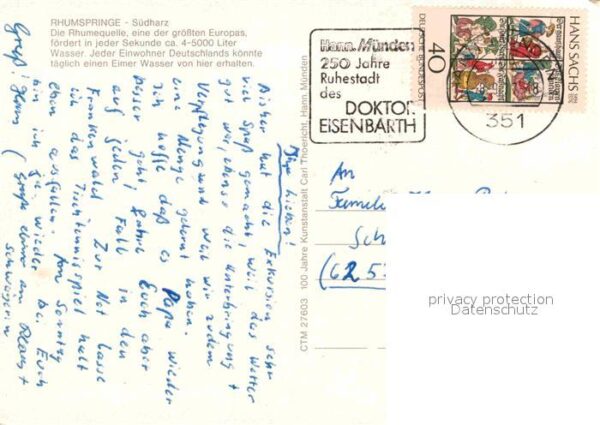 RHUMSPRINGE - Südharz
Die Rhumequelle, eine der größten Europas,
fördert in jeder Sekunde ca. 4-5000 Liter
Wasser. Jeder Einwohner Deutschlands könnte
täglich einen Eimer Wasser von hier erhalten.
Ihr Lieben!
Bisher hat die Exkursion sehr
viel Spaß gemacht, weil das Wetter
gut war, ebenso die Unterbringung +
Verpflegung und weil wir zudem
eine Menge gelernt haben.
Ich hoffe daß es Papa wieder
besser geht, fahrt Euch aber
auf jeden Fall in den
Frankenwald. Zur Not lasse
ich das Tischtennisspiel halt
eben ausfallen. Am Sonntag
bin ich ja wieder bei Euch
Gruß! (Grüße auch an Klaus +
Schwägerin
CTM 27603 100 Jahre Kunstanstalt Carl Thoericht, Hann. Münden
Hann. Münden
250 Jahre
Ruhestadt
des
DOKTOR
EISENBARTH
351
HANS SACHS
DEUTSCHE BUNDESPOST
40
An
Famili
Sch
(625
privacy protection
Datenschutz